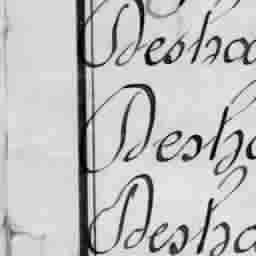 Desha
Desha
Desha